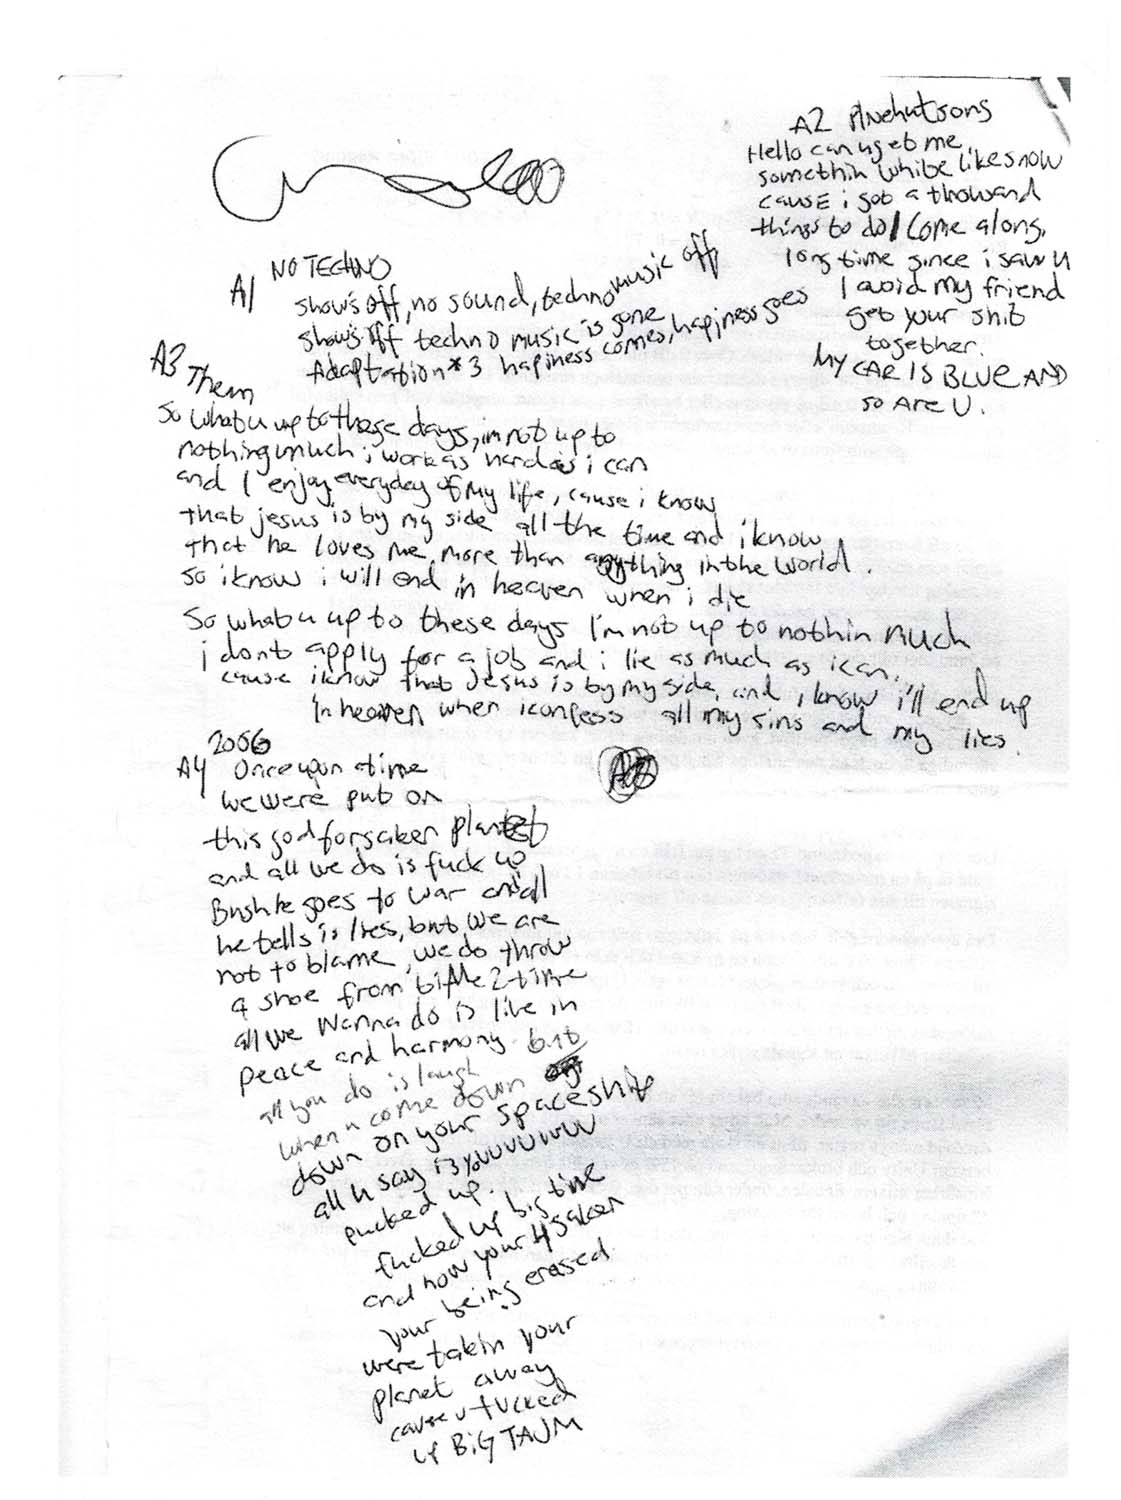 A2
Hello can u get me
somethin white like snow
cause i got a thowand
things to do / Come along,
long time since i saw u
I avoid my friend
get your shit
together.
My CAR IS BLUE AND
so Are U.
NO TECHNO
A1
shows off, no sound, techno music off
shows off techno music is gone
Adaptation*3 hapiness comes, hapiness goes
A3 Them
So what u up to these days, im not up to
nothing much i work as hard as i can
and I enjoy everyday of my life, cause i know
that jesus is by my side all the time and i know
that he loves me more than anything in the world.
so i know i will end in heaven when i die
So what u up to these days I'm not up to nothin much
i dont apply for a job and i lie as much as i can.
cause i know that Jesus is by my side, and i know i'll end up
In heaven when i confess all my sins and my lies.
2006
A4 Once upon a time
we were put on
this god forsaken planet
and all we do is fuck up
Bush he goes to war and all
he tells is lies, but we are
not to blame, we do throw
a shoe from time 2 time
all we wanna do is live in
peace and harmony but
all you do is laugh
when u come down
down on your spaceship
all u say is youuuuuuu
fucked up.
fucked up big time
and now your 4saken
your being erased
were takin your
planet away
cause u fucked
up BiG TAJM